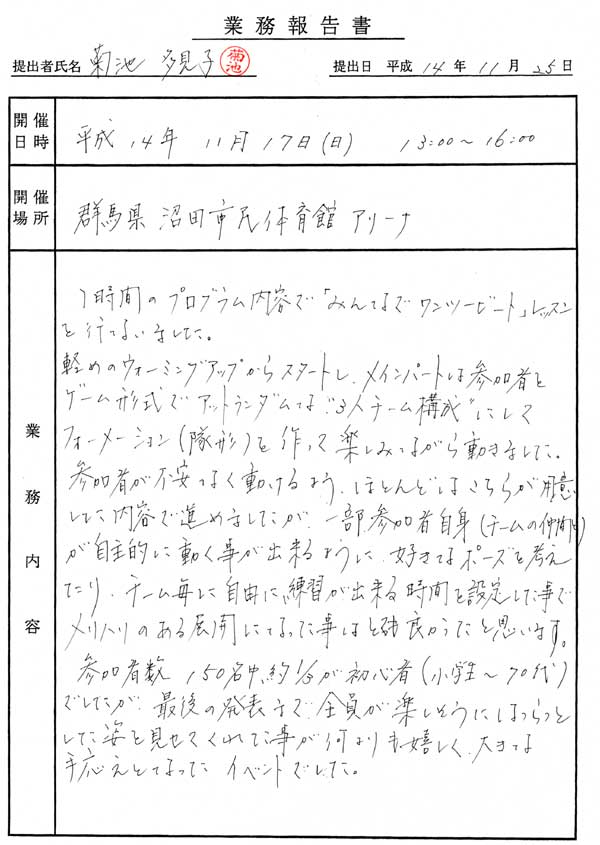 業務報告書
提出者氏名 菊池 多見子 菊池 提出日 平成 14年 11月 25日
開催日時 平成 14年 11月 17日(日) 13:00~16:00
開催場所 群馬県 沼田市民体育館 アリーナ
業務内容
1時間のプログラム内容で「みんなでワンツービート」レッスン
を行ないました。
軽めのウォーミングアップからスタートし、メインパートは参加者と
ゲーム形式でアットランダムな"3人チーム構成"にして
フォーメーション(隊形)を作って楽しみながら動きました。
参加者が不安なく動けるよう、ほとんどはこちらが用意
した内容で進めましたが、一部、参加者自身(チームの仲間)
が自主的に動く事が出来るように、好きなポーズを考え
たり、チーム毎に自由に練習が出来る時間を設定した事で
メリハリのある展開になった事はとても良かったと思います。
参加者数 150名中、約1/3が初心者(小学生~70代)
でしたが、最後の発表まで、全員が楽しそうにはつらつと
した姿を見せてくれた事が何よりも嬉しく、大きな
手応えとなった イベントでした。